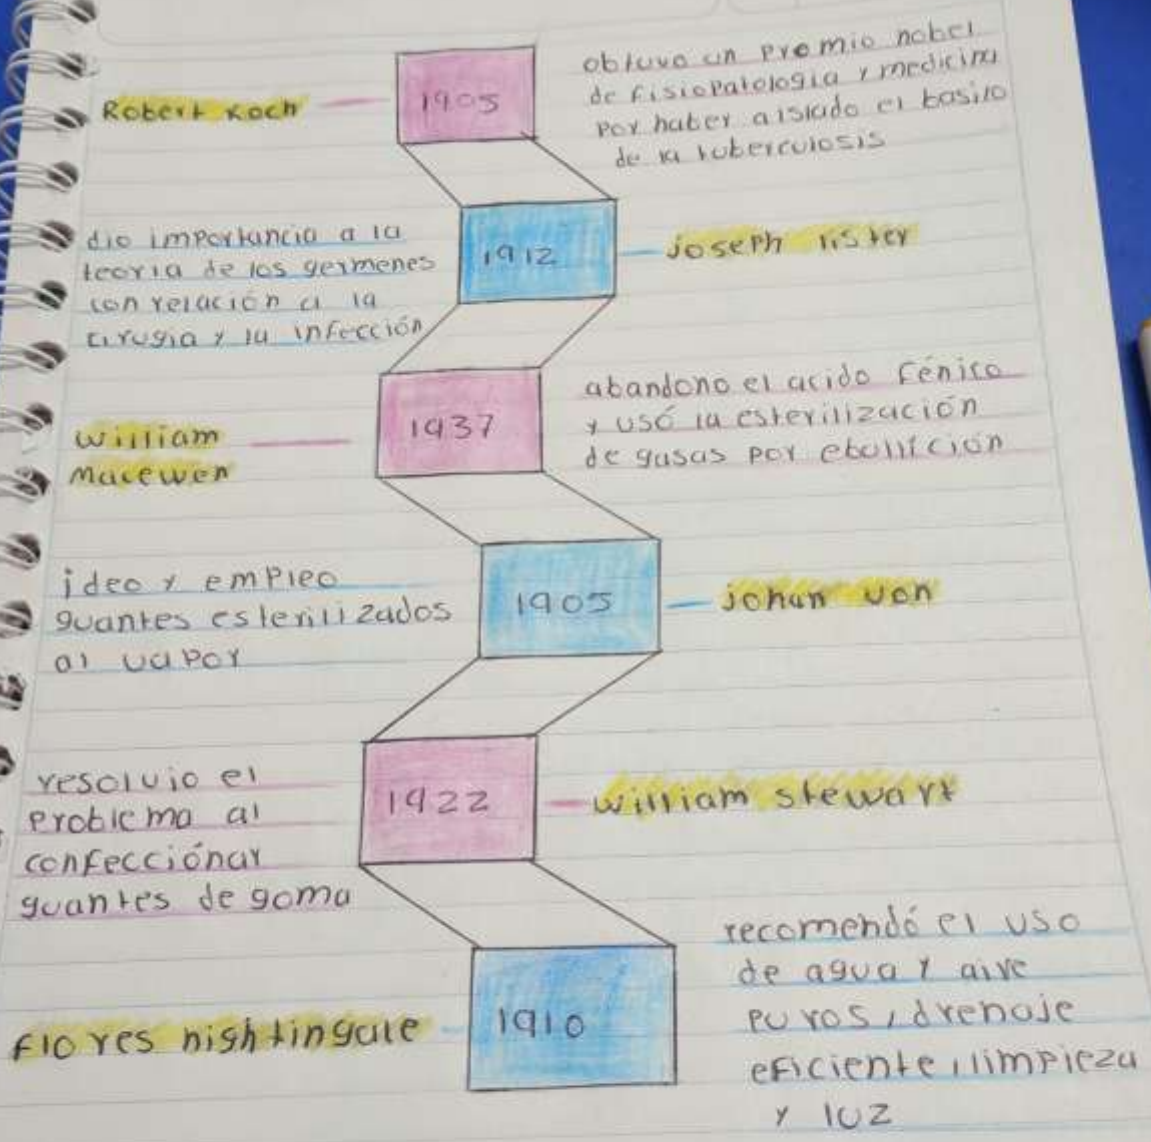 Robert Koch
1905
obtuvo un premio nobel
de fisiopatologia y medicina
por haber aislado el basilo
de la tuberculosis
dio importancia a la
teoria de los germenes
con relación a la
cirugia y la infección
1912
Joseph lister
william
Macewen
1937
abandono el acido fénico
y usó la esterilización
de gasas por ebullición
ideo y empleo
guantes esterilizados
al vapor
1905
Johan von
resolvio el
problema al
confecciónar
guantes de goma
1922
william stewart
flores nightingale
1910
recomendó el uso
de agua y aire
puros, drenaje
eficiente, limpieza
y luz